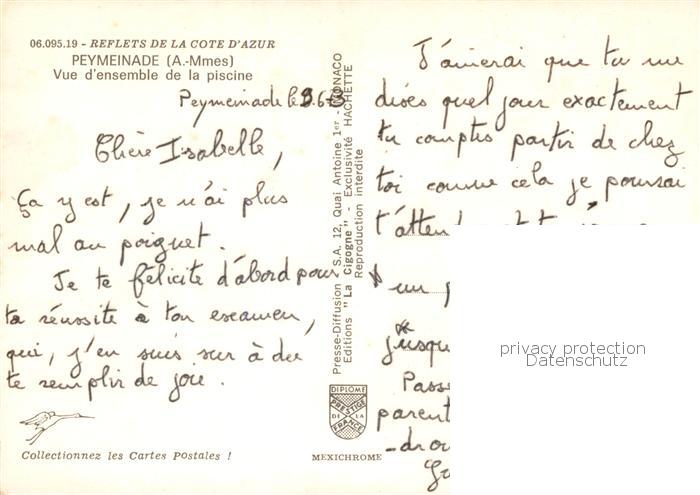 06.095.19 - REFLETS DE LA COTE D'AZUR
PEYMEINADE (A.-Mmes)
Vue d'ensemble de la piscine
Peymeinade le
Chère Isabelle,
Ça y est, je n'ai plus
mal au poignet.
Je te félicite d'abord pour
ta réussite à ton examen,
qui, j'en suis sur à du
te remplir de joie.
Collectionnez les Cartes Postales !
Presse-Diffusion S.A. 12, Quai Antoine 1er - MONACO
Editions "La Cigogne" - Exclusivité HACHETTE
Reproduction interdite
DIPLOME
PRESTIGE
DE LA
FRANCE
MEXICHROME
J'aimerai que tu me
dises quel jour exactement
tu comptes partir de chez
toi comme cela je pourrai
un
jusqu
Pass
parent
-dro
privacy protection
Datenschutz